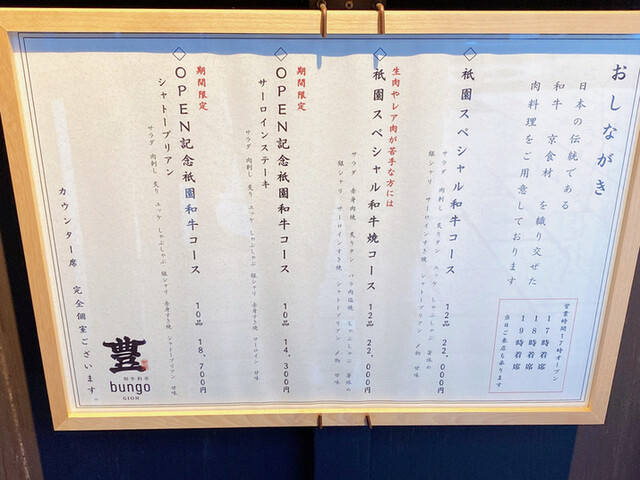 おしながき
日本の伝統である
和牛 京食材 を織り交ぜた
肉料理をご用意しております
営業時間17時オープン
17時着席
18時着席
19時着席
当日ご来店も承ります
◇祇園スペシャルコース 12品 22,000円
サラダ 肉刺し 炙りタン ユッケ しゃぶしゃぶ
銀シャリ サーロインすき焼 シャトーブリアン 〆物 甘味
生肉やレア肉が苦手な方には
◇祇園スペシャル和牛焼コース 12品 22,000円
サラダ 赤身肉焼 炙りタン バラ肉塩焼 しゃぶしゃぶ
銀シャリ サーロインすき焼 シャトーブリアン 〆物 甘味
期間限定
◇OPEN記念祇園和牛コース 10品 14,300円
サーロインステーキ
サラダ 肉刺し 炙り ユッケ しゃぶしゃぶ 銀シャリ 赤身すき焼 サーロイン 甘味
期間限定
◇OPEN記念祇園和牛コース 10品 18,700円
シャトーブリアン
サラダ 肉刺し 炙り ユッケ しゃぶしゃぶ 銀シャリ 赤身すき焼 シャトーブリアン 甘味
カウンター席 完全個室ございます。
豊
和牛料亭
bungo
GION